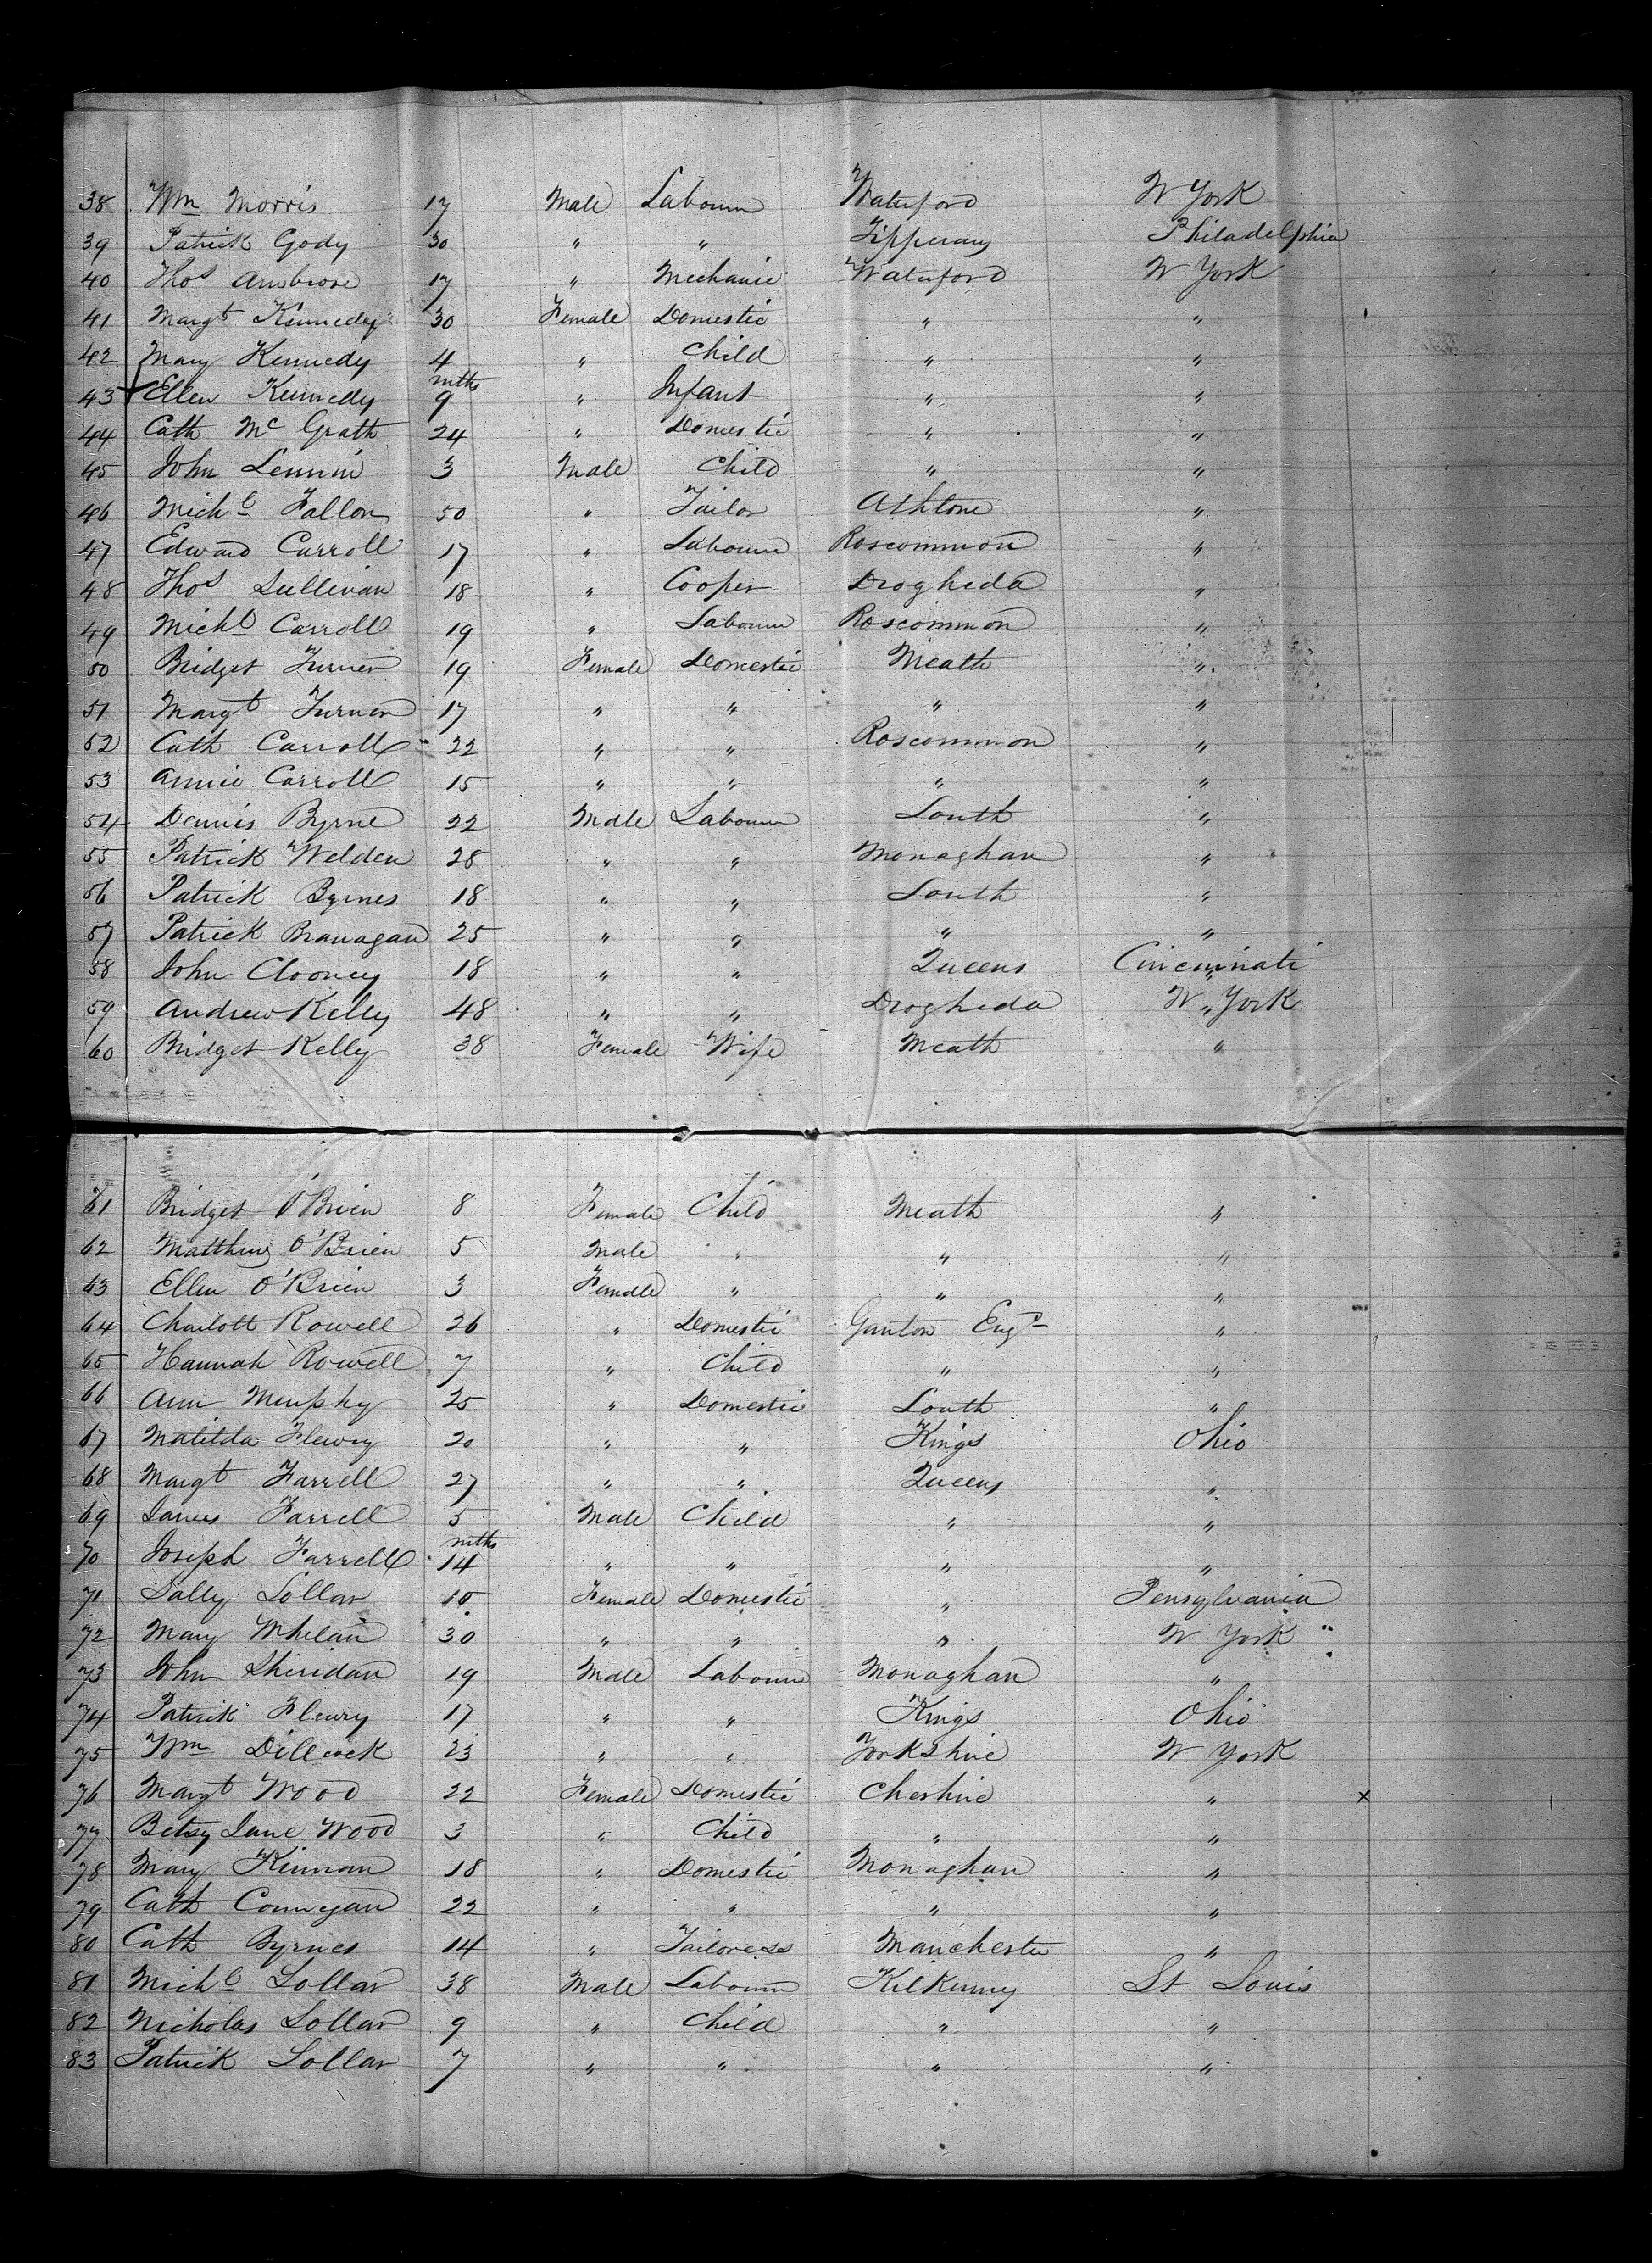 38 Wm Morris 17 Male Labourer Waterford N York
39 Patrick Gody 30 " " Tipperary Philadelphia
40 Thos Ambrose 17 " Mechanic Waterford N York
41 Margt Kennedy 30 Female Domestic " "
42 Mary Kennedy 4 " Child " "
43 Ellen Kennedy mths 9 " Infant " "
44 Cath Mc Grath 24 " Domestic " "
45 John Lennin 3 Male Child " "
46 Michl Fallon 50 " Tailor Athlone "
47 Edward Carroll 17 " Labourer Roscommon "
48 Thos Sullivan 18 " Cooper Drogheda "
49 Michl Carroll 19 " Labourer Roscommon "
50 Bridget Turner 19 Female Domestic Meath "
51 Margt Turner 17 " " " "
52 Cath Carroll 22 " " Roscommon "
53 Annie Carroll 15 " " " "
54 Dennis Byrne 22 Male Labourer Louth "
55 Patrick Welden 28 " " Monaghan "
56 Patrick Byrnes 18 " " Louth "
57 Patrick Branagan 25 " " " "
58 John Clooney 18 " " Queens Cincinnati "
59 Andrew Kelly 48 " " Drogheda N " York
60 Bridget Kelly 38 Female Wife Meath "
61 Bridget O'Brien 8 Female Child Meath "
62 Matthew O'Brien 5 Male " " "
63 Ellen O'Brien 3 Female " " "
64 Charlott Rowell 26 " Domestic Ganton Engd "
65 Hannah Rowell 7 " Child " "
66 Ann Murphy 25 " Domestic Louth "
67 Matilda Fleury 20 " " Kings Ohio
68 Margt Farrell 27 " " Queens "
69 James Farrell 5 Male Child " "
70 Joseph Farrell mths 14 " " " "
71 Sally Lollar 10 Female Domestic " Pensylvania
72 Mary Whelan 30 " " " N York "
73 John Sheridan 19 Male Labourer Monaghan "
74 Patrick Fleury 17 " " Kings Ohio
75 Wm Dillcock 23 " " Yorkshire N York
76 Margt Wood 22 Female Domestic Cheshire " x
77 Betsy Jane Wood 3 " Child " "
78 Mary Kinnan 18 " Domestic Monaghan "
79 Cath Connegan 22 " " " "
80 Cath Byrnes 14 " Tailoress Manchester "
81 Michl Lollar 38 Male Labourer Kilkenny St Louis
82 Nicholas Lollar 9 " Child " "
83 Patrick Lollar 7 " " " "